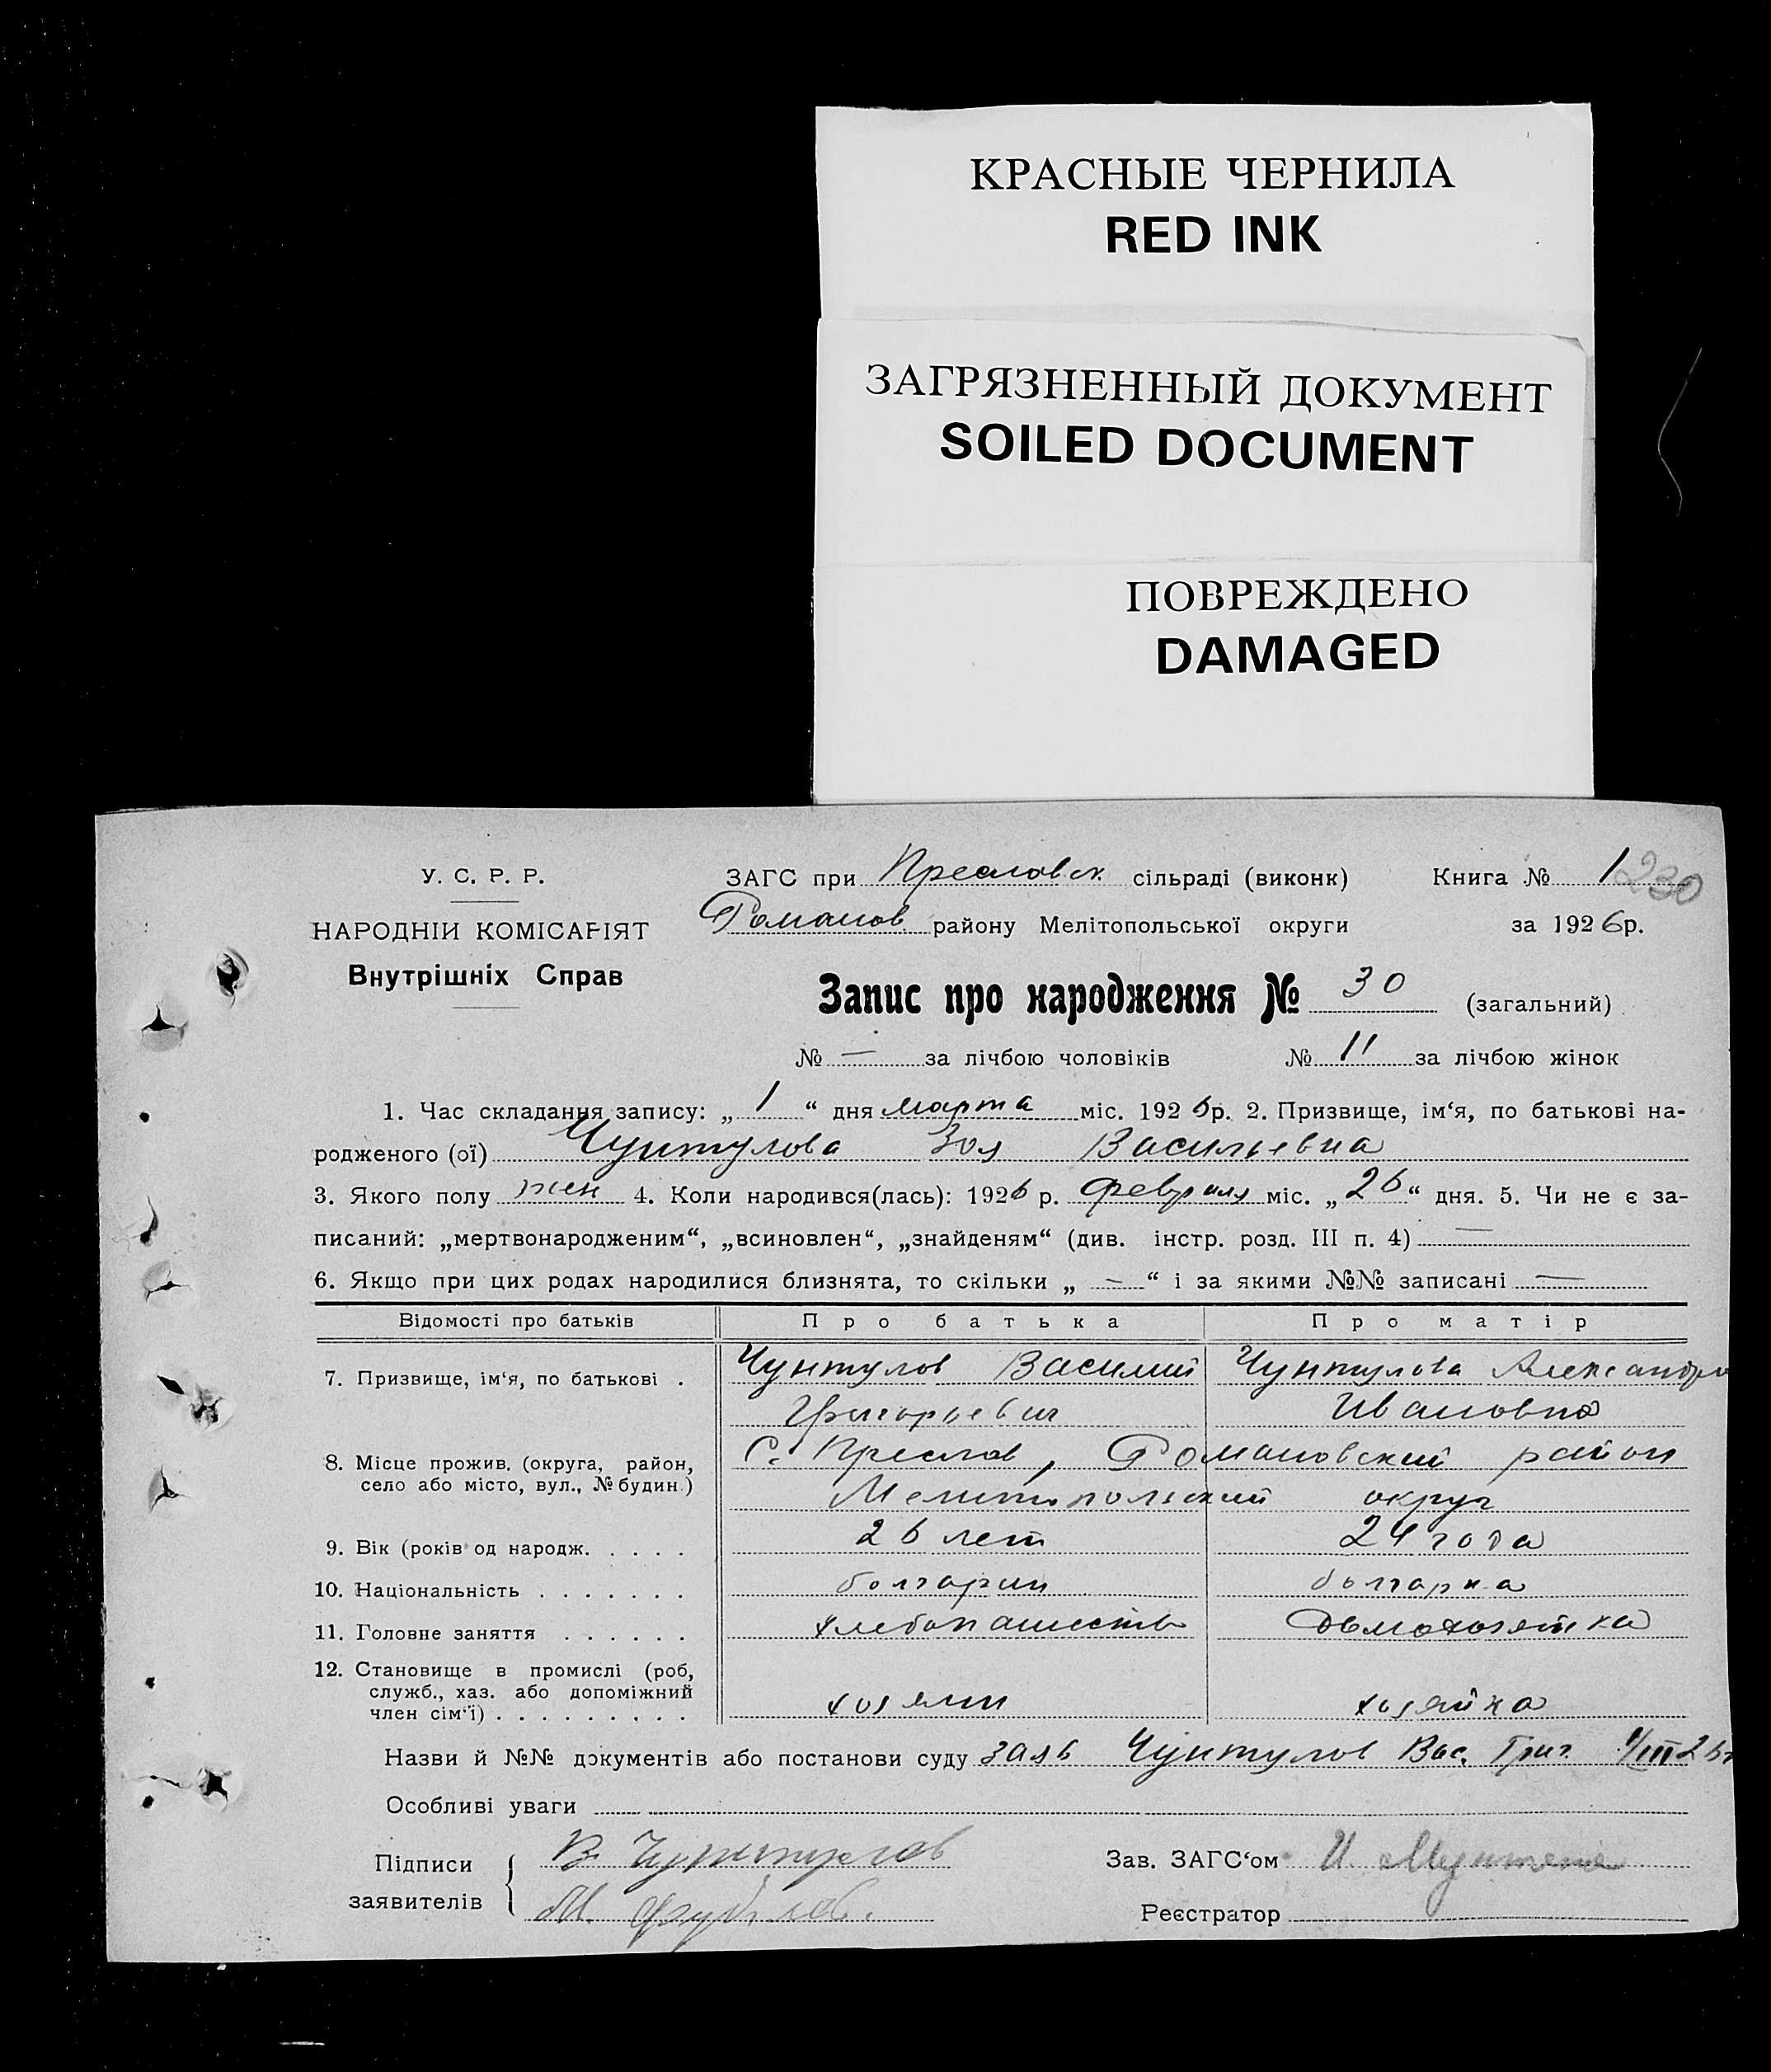 КРАСНЫЕ ЧЕРНИЛА
RED INK
ЗАГРЯЗНЕННЫЙ ДОКУМЕНТ
SOILED DOCUMENT
ПОВРЕЖДЕНО
DAMAGED
У. С. Р. Р.
НАРОДНІЙ КОМІСАРІЯТ
Внутрішніх Справ
ЗАГС при Преславск. сільраді (виконк) Книга № 1 230
Романов. району Мелітопольської округи за 1926р.
Запис про народження № 30 (загальний)
№ — за лічбою чоловіків № 11 за лічбою жінок
1. Час складання запису: „ 1 “ дня марта міс. 1926р. 2. Призвище, ім‘я, по батькові на-
родженого (ої) Чунтулова Зоя Васильевна
3. Якого полу жен 4. Коли народився(лась): 1926 р. февраля міс. „ 26 “ дня. 5. Чи не є за-
писаний: „мертвонародженим“, „всиновлен“, „знайденям“ (див. інстр. розд. III п. 4) —
6. Якщо при цих родах народилися близнята, то скільки „ — “ і за якими №№ записані —
Відомості про батьків Про батька Про матір
7. Призвище, ім‘я, по батькові . Чунтулов Василий Чунтулова Александра
Григорьевич Ивановна
8. Місце прожив. (округа, район, С. Преслав, Романовский район
село або місто, вул., № будин.) Мелитопольский округ
9. Вік (років од народж. . . . . 26 лет 24 года
10. Національність . . . . . . . болгарин болгарка
11. Головне заняття . . . . . . хлебопашество домохозяйка
12. Становище в промислі (роб,
служб., хаз. або допоміжний
член сім‘ї) . . . . . . . . . хозяин хозяйка
Назви й №№ документів або постанови суду заяв Чунтулов Вас. Григ. 1/III 26г
Особливі уваги
Підписи В. Чунтулов Зав. ЗАГС‘ом И.
заявителів М.
Реєстратор